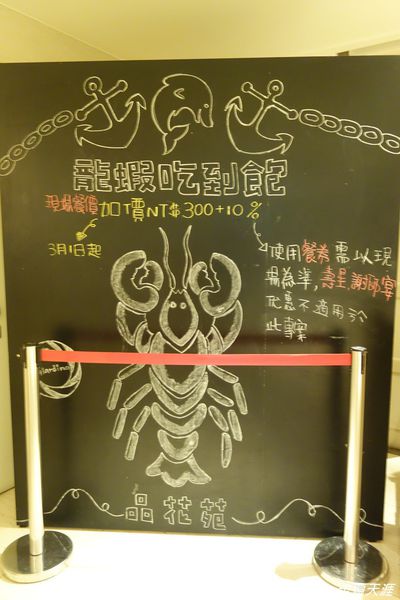 龍蝦吃到飽
現場餐價加價NT$300+10%
3月1日起
使用餐券需以現
場為準,壽星,謝師宴
優惠不適用於
此專案
Giardino
品花苑